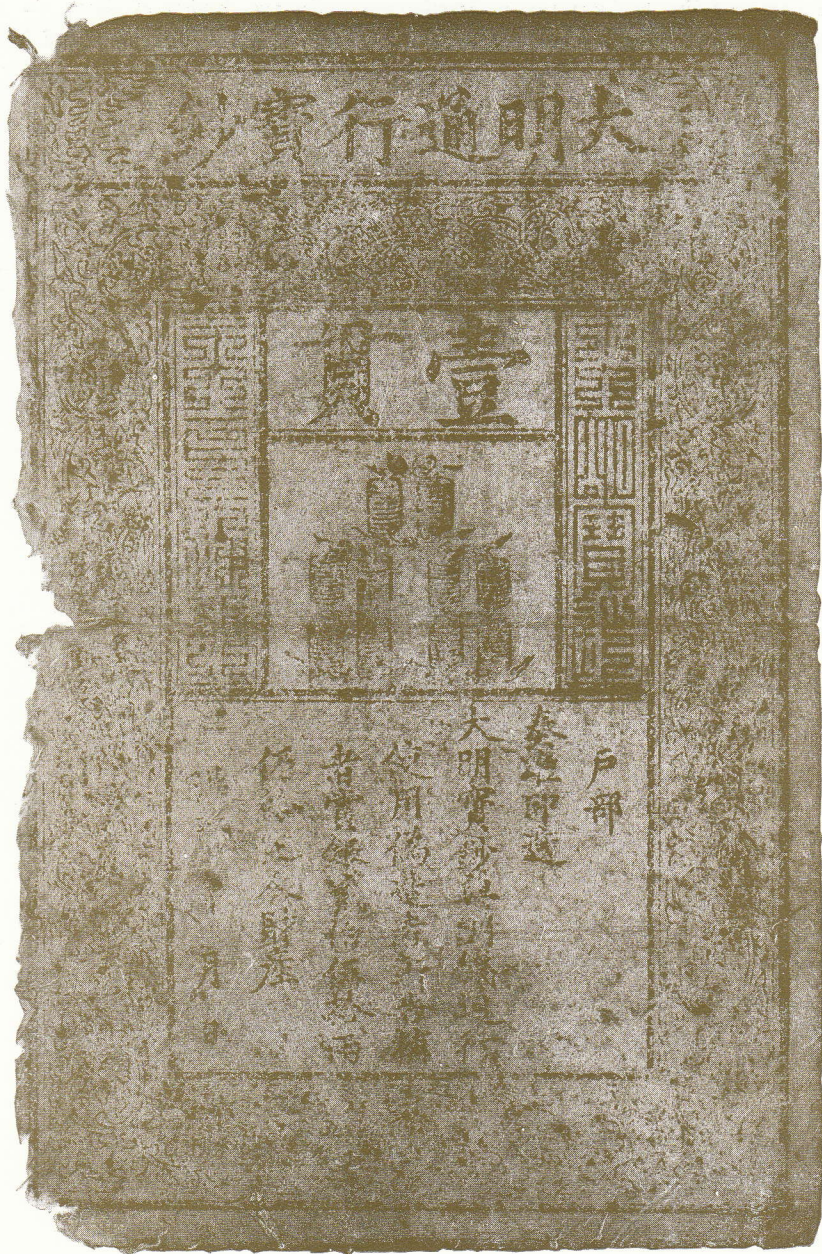 大明通行寶鈔
壹貫
大明寶鈔
戶部
奏准印造
大明寶鈔與銅錢通行
使用偽造者斬告捕
者賞銀貳伍拾兩
仍給犯人財產
年 月 日